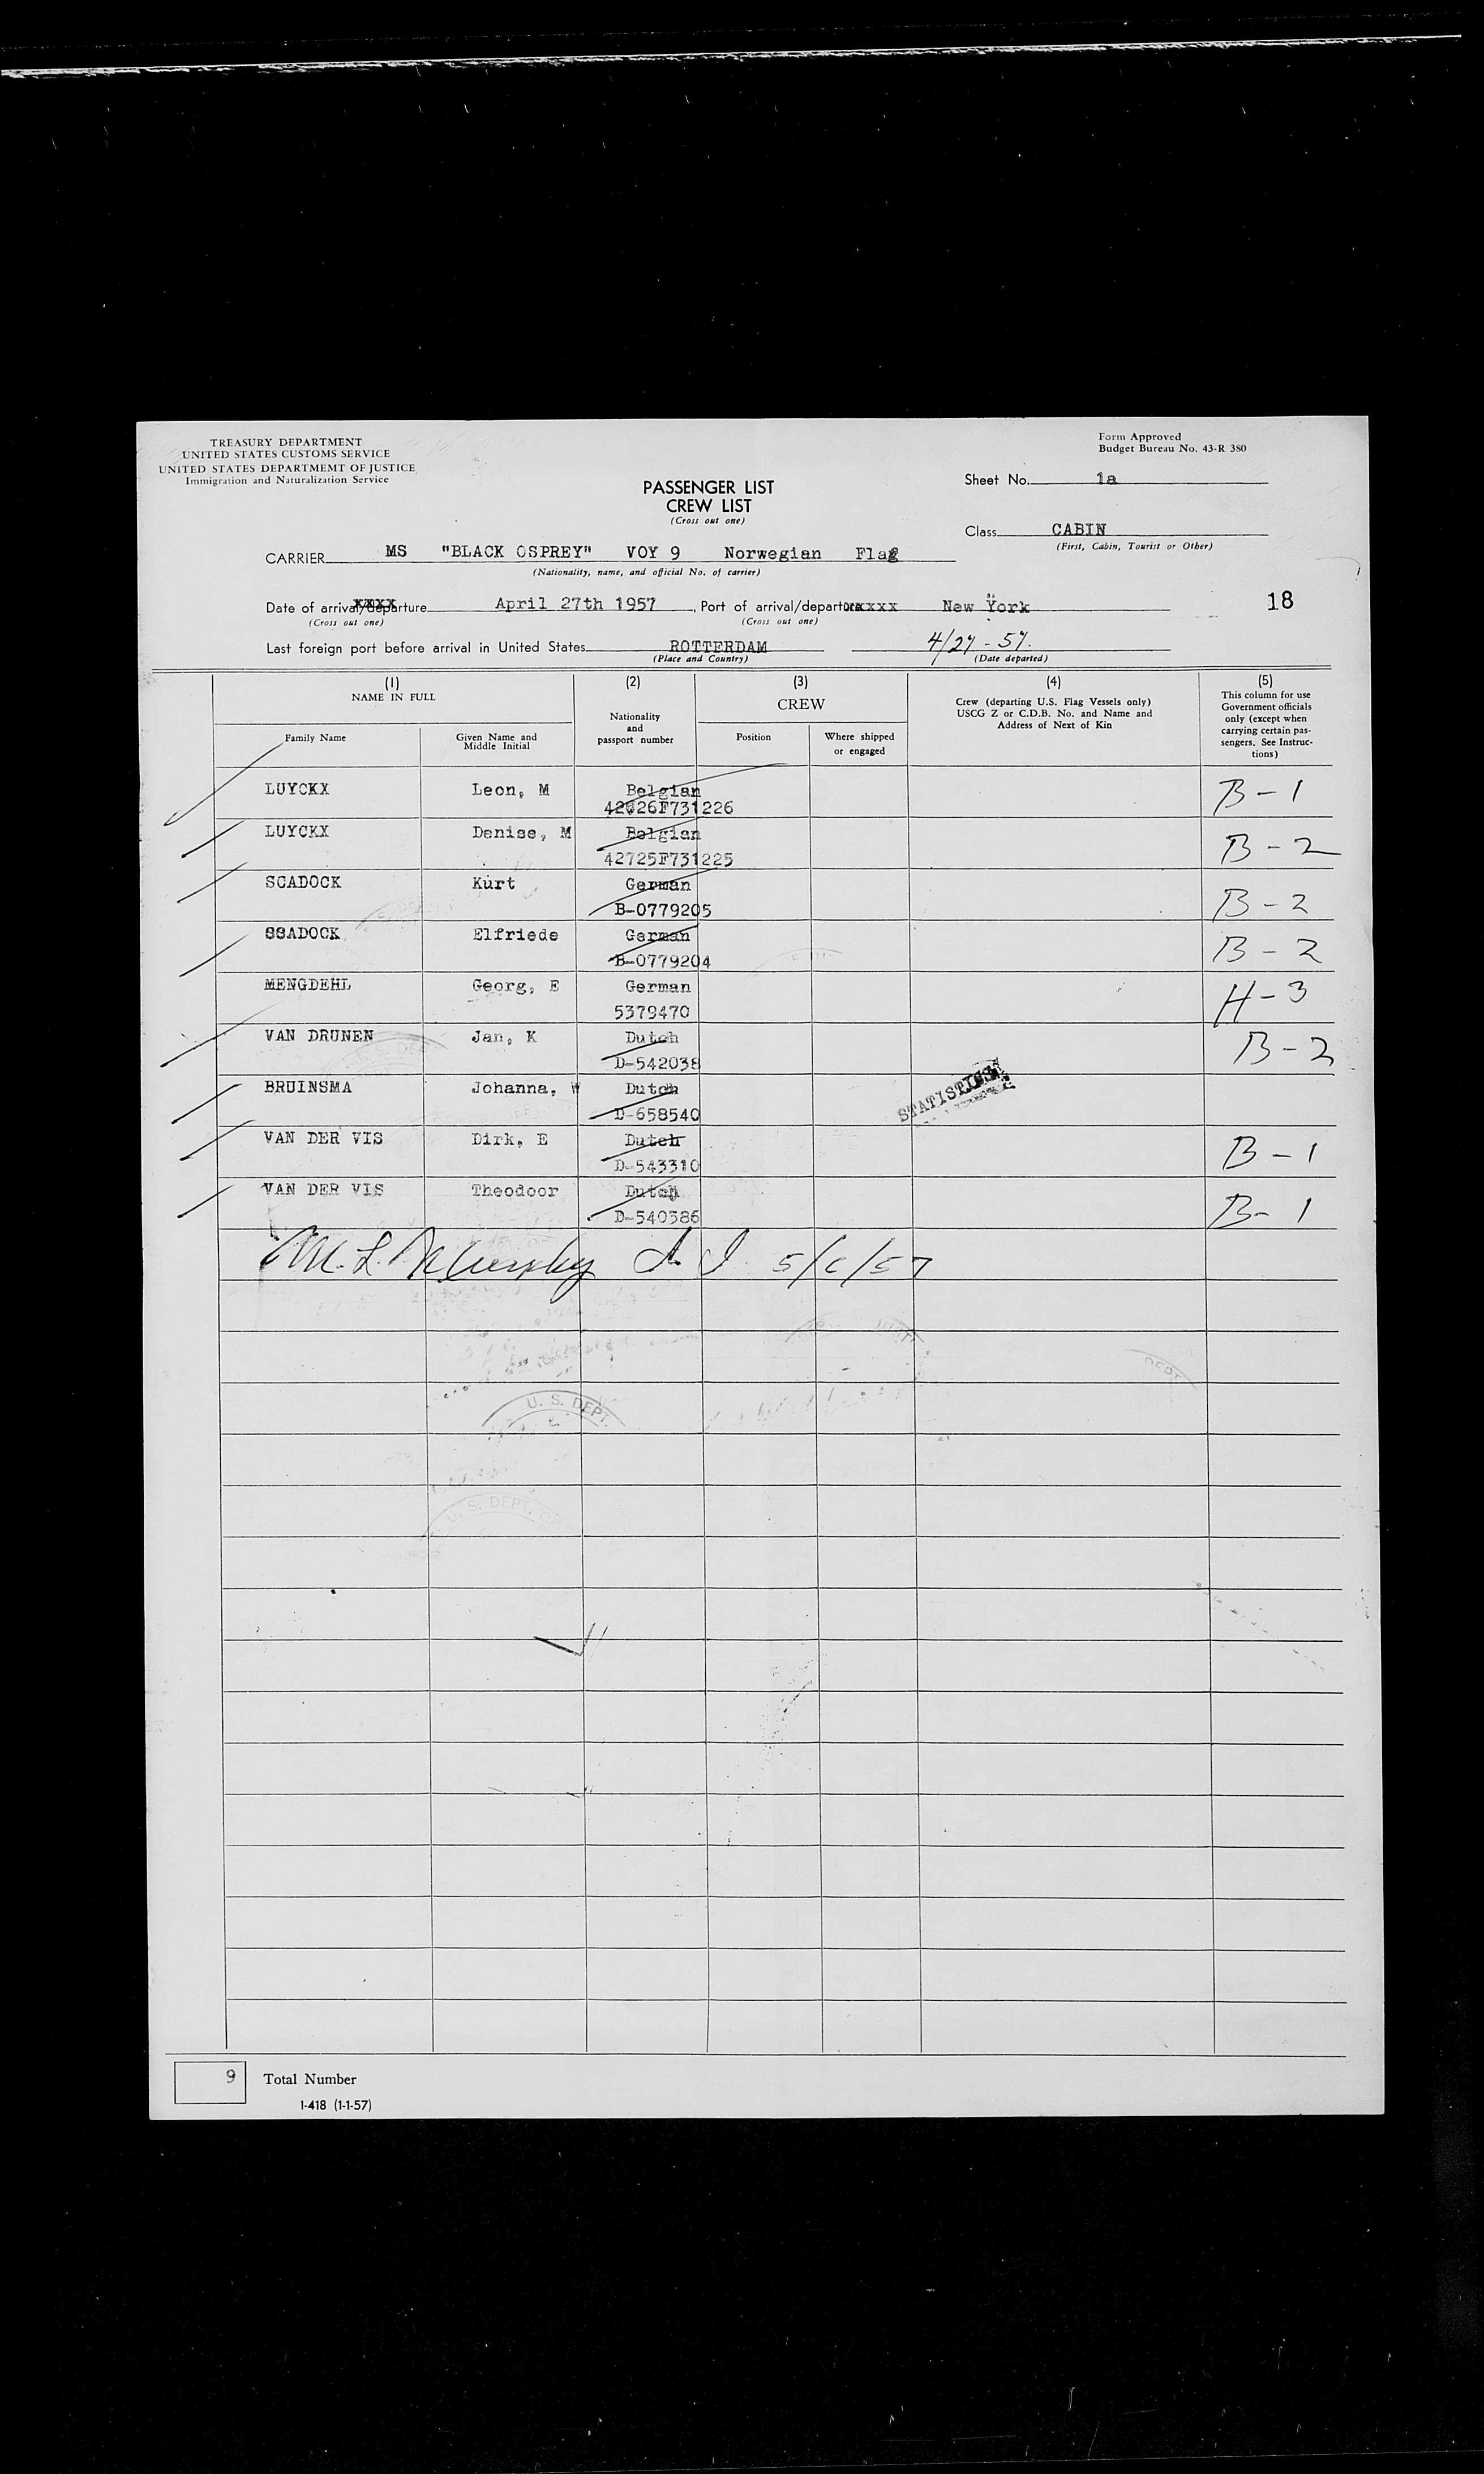 TREASURY DEPARTMENT
UNITED STATES CUSTOMS SERVICE
UNITED STATES DEPARTMEMT OF JUSTICE
Immigration and Naturalization Service
Form Approved
Budget Bureau No. 43-R 380
PASSENGER LIST
CREW LIST
(Cross out one)
Sheet No. 1a
Class CABIN
(First, Cabin, Tourist or Other)
CARRIER MS "BLACK OSPREY" VOY 9 Norwegian Flag
(Nationality, name, and official No. of carrier)
Date of arrival/departure April 27th 1957, Port of arrival/departure xxxx New York
(Cross out one) (Cross out one)
18
Last foreign port before arrival in United States ROTTERDAM 4/27-57.
(Place and Country) (Date departed)
(1) NAME IN FULL
Family Name
Given Name and Middle Initial
(2)
Nationality
and
passport number
(3)
CREW
Position
Where shipped
or engaged
(4)
Crew (departing U.S. Flag Vessels only)
USCG Z or C.D.B. No. and Name and
Address of Next of Kin
(5)
This column for use
Government officials
only (except when
carrying certain pas-
sengers. See Instruc-
tions)
LUYCKX Leon, M Belgian B-1
F731226
LUYCKX Denise, M Belgian B-2
42725F731225
SCADOCK Kurt German B-2
B-0779205
SSADOCK Elfriede German B-2
B-0779204
MENGDEHL Georg, E German H-3
5379470
VAN DRUNEN Jan, K Dutch B-2
D-542038
BRUINSMA Johanna, W Dutch
D-658540
STATISTICS
VAN DER VIS Dirk, E Dutch B-1
D-543310
VAN DER VIS Theodoor Dutch B-1
D-540386
M. L. Murphy 5/6/57
U. S. DEPT.
U. S. DEPT.
DEPT
9 Total Number
I-418 (1-1-57)